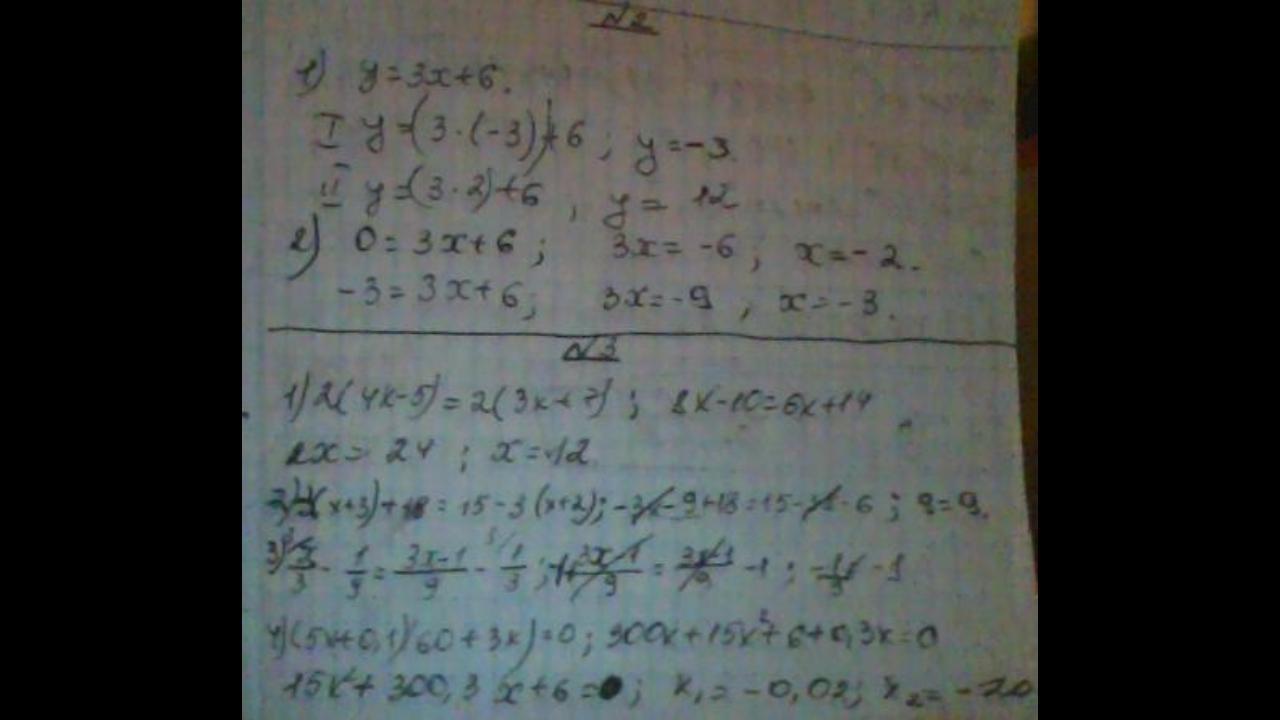 №2
1) y=3x+6.
I y=(3·(-3))+6 ; y=-3
II y=(3·2)+6 , y= 12
2) 0=3x+6 ; 3x=-6 ; x=-2.
-3=3x+6; 3x=-9 , x=-3.
№3
1) 2(4x-5)=2(3x+7) ; 8x-10=6x+14
2x= 24 ; x=12
(x+3)+18=15-3(x+2); -3x-9+18=15-3x-6 ; 9=9.
3) x/3 - 1/9 = 3x-1/9 - 1/3 ; 3x-1/9 = 3x-1/9 -1 ;
4) (5x+0,1)(60+3x)=0 ; 300x+15x²+6+0,3x=0
15x²+ 300,3 x+6=0 ; x₁=-0,02; x₂=-20